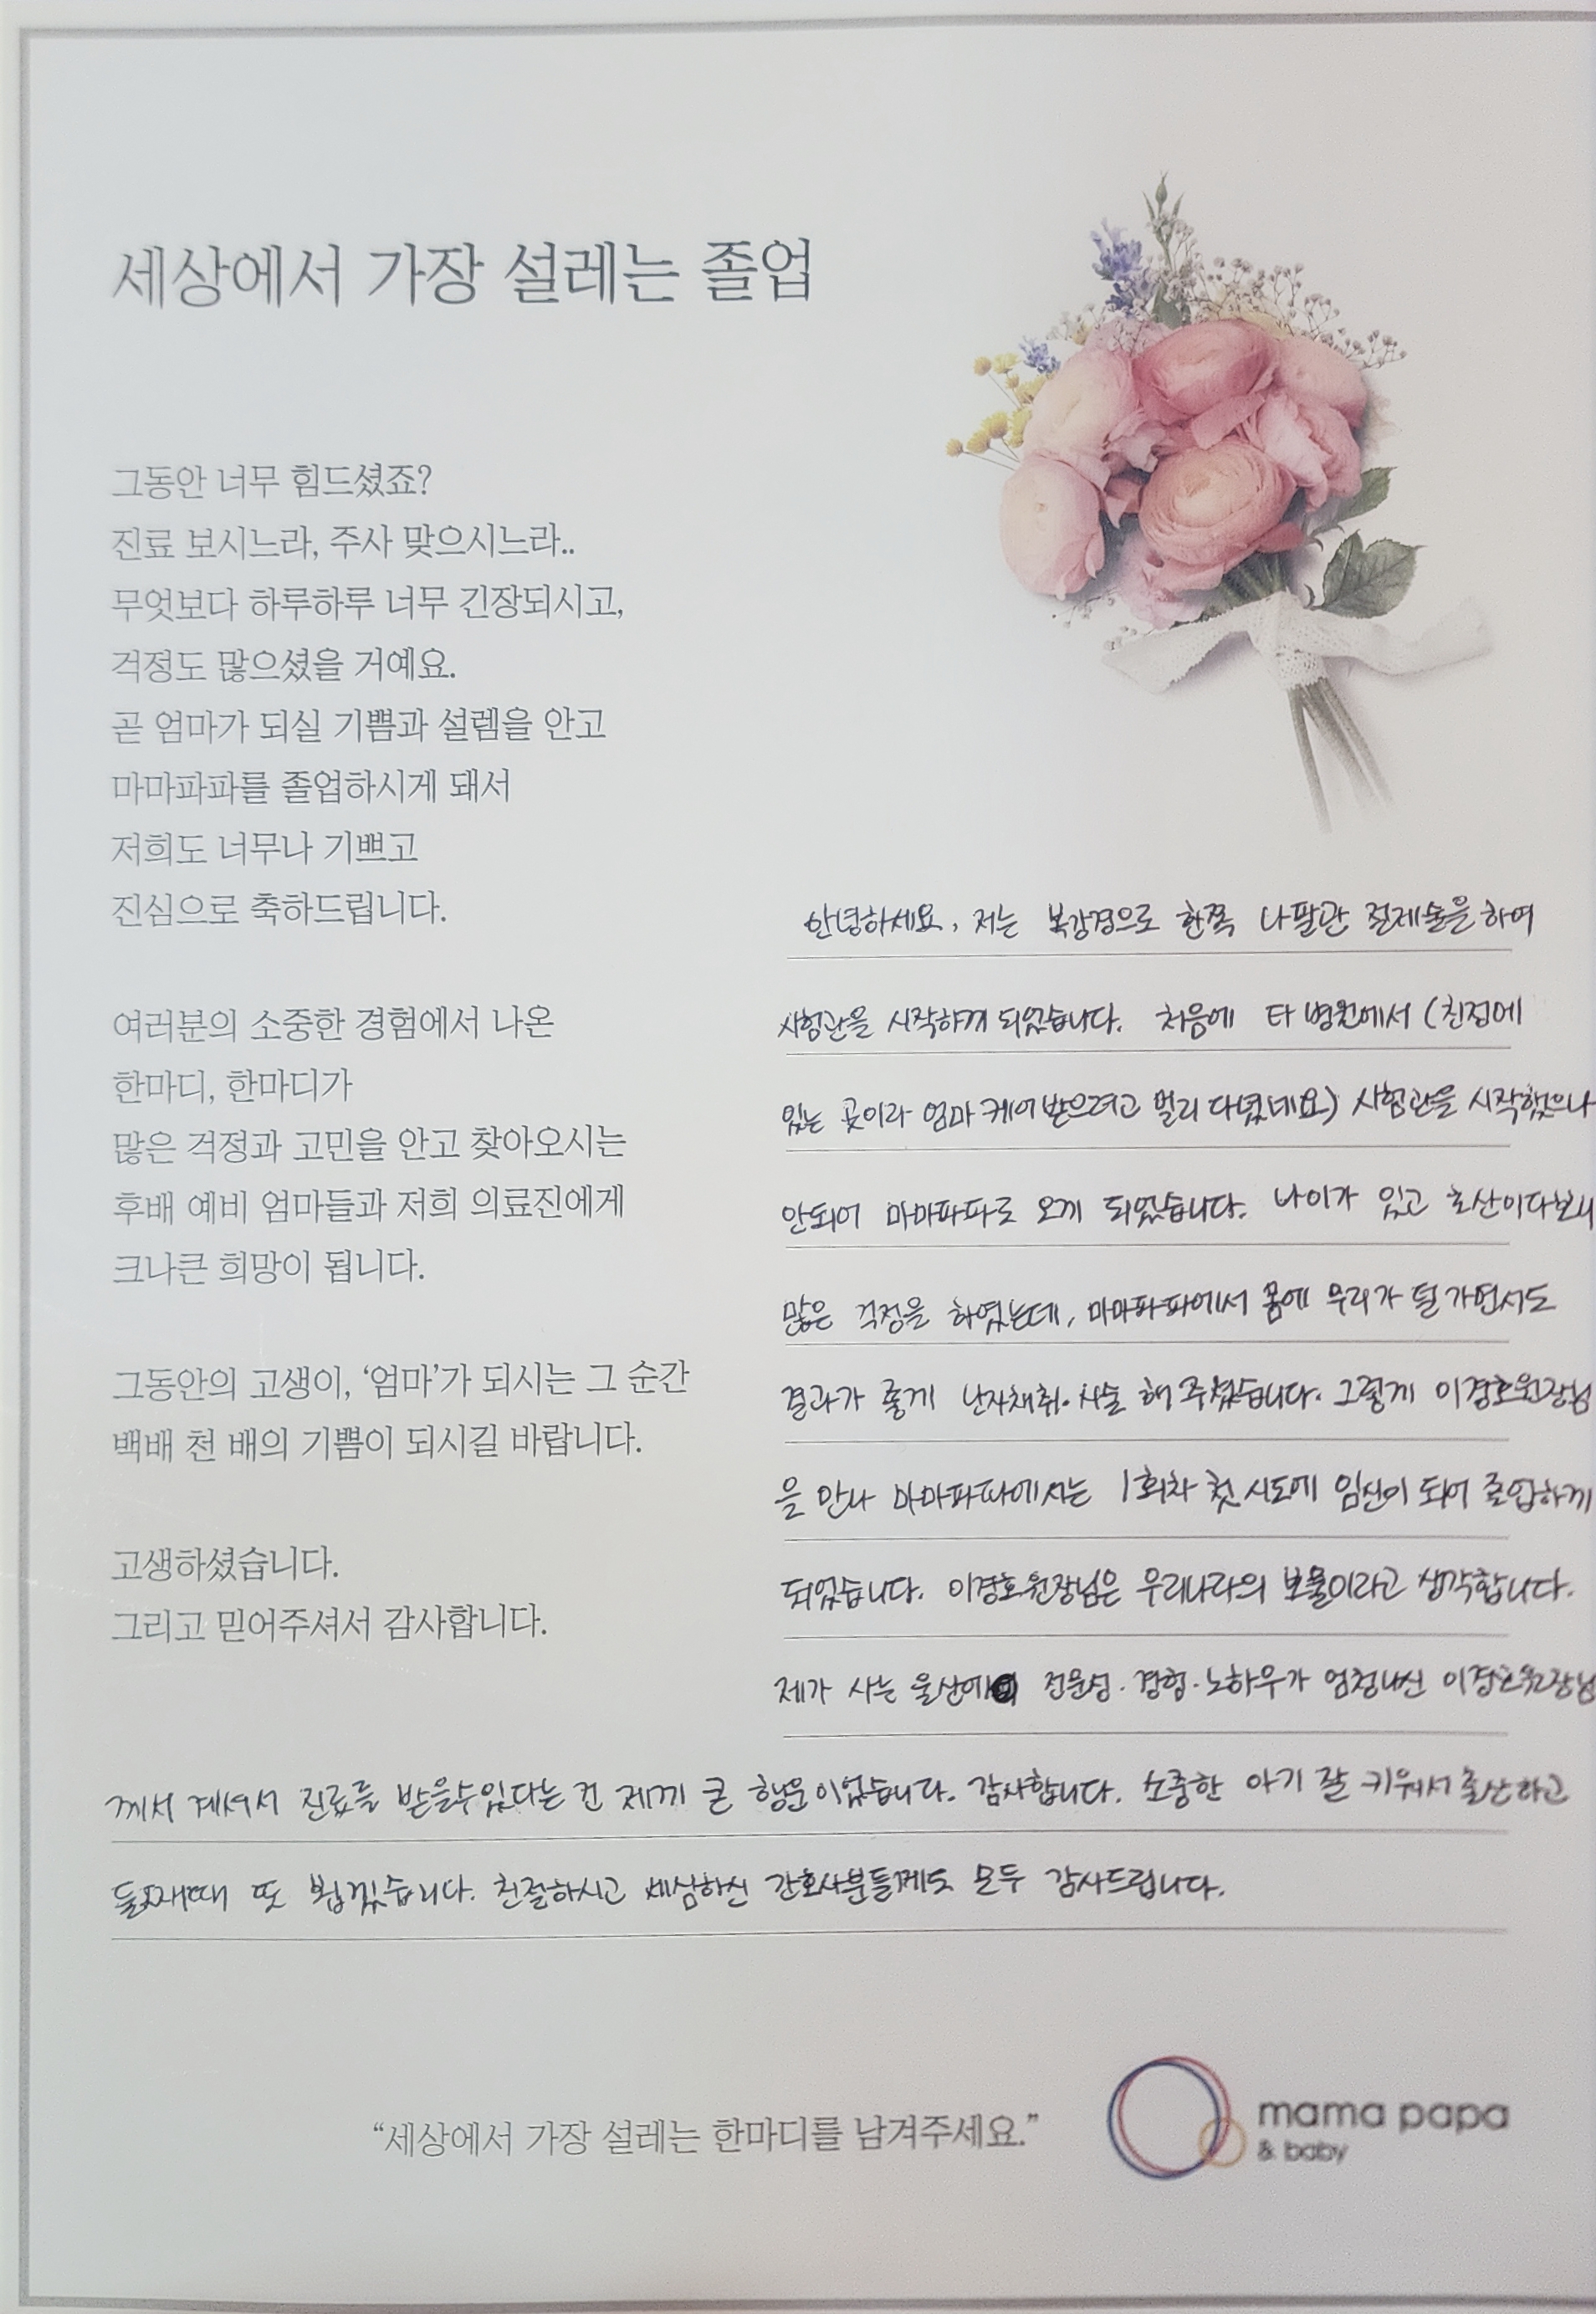 세상에서 가장 설레는 졸업
그동안 너무 힘드셨죠?
진료 보시느라, 주사 맞으시느라..
무엇보다 하루하루 너무 긴장되시고,
걱정도 많으셨을 거예요.
곧 엄마가 되실 기쁨과 설렘을 안고
마마파파를 졸업하시게 돼서
저희도 너무나 기쁘고
진심으로 축하드립니다.
여러분의 소중한 경험에서 나온
한마디, 한마디가
많은 걱정과 고민을 안고 찾아오시는
후배 예비 엄마들과 저희 의료진에게
크나큰 희망이 됩니다.
그동안의 고생이, ‘엄마’가 되시는 그 순간
백배 천 배의 기쁨이 되시길 바랍니다.
고생하셨습니다.
그리고 믿어주셔서 감사합니다.
안녕하세요, 저는 복강경으로 한쪽 나팔관 절제술을 하여
시험관을 시작하게 되었습니다. 처음에 타 병원에서 (친정에
있는 곳이라 엄마 케어받으려고 멀리 다녔네요) 시험관을 시작했으나
안되어 마마파파로 오게 되었습니다. 나이가 있고 초산이다보니
많은 걱정을 하였는데, 마마파파에서 몸에 무리가 덜 가면서도
결과가 좋게 난자채취·시술 해 주셨습니다. 그렇게 이경호원장님
을 만나 마마파파에서는 1회차 첫 시도에 임신이 되어 졸업하게
되었습니다. 이경호원장님은 우리나라의 보물이라고 생각합니다.
제가 사는 울산에 전문성·경험·노하우가 엄청나신 이경호원장님
께서 계셔서 진료를 받을수있다는 건 제게 큰 행운이었습니다. 감사합니다. 소중한 아기 잘 키워서 출산하고
둘째때 또 뵙겠습니다. 친절하시고 세심하신 간호사분들께도 모두 감사드립니다.
“세상에서 가장 설레는 한마디를 남겨주세요.”
mama papa
& baby